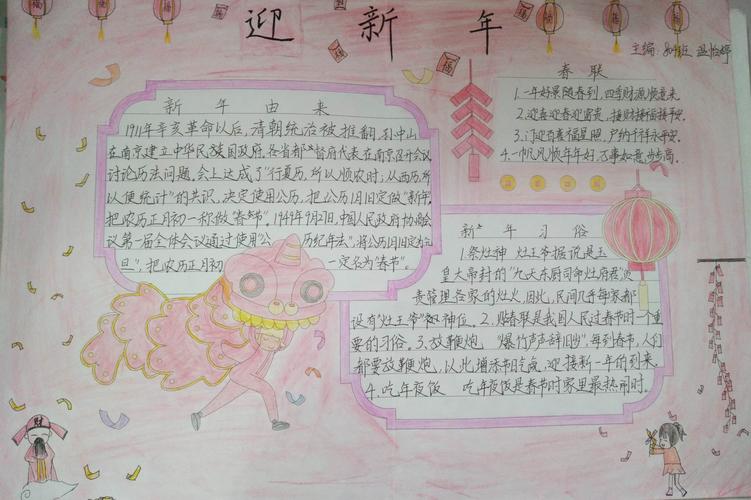 迎新年
主编:
春联
1.一年好景随春到,四季财源顺意来
2.迎喜迎春迎富贵,接财接福接平安.
3.门迎百喜福星照,户纳千祥永平安.
4.一帆风顺年年好,万事如意步步高.
新年由来
1911年辛亥革命以后,清朝统治被推翻,孙中山
在南京建立中华民族国政府.各省都督府代表在南京召开会议
讨论历法问题,会上达成了"行夏历,所以顺农时;从西历所
以便统计"的共识,决定使用公历,把公历1月1日定做"新年",
把农历正月初一称做"春节".1949年9月27日,中国人民政府协商会
议第一届全体会议通过使用"公 历纪年法",将公历1月1日定为"元
旦",把农历正月初 一定名为"春节".
新年习俗
1.祭灶神 灶王爷据说是玉
皇大帝封的"九天东厨司命灶府君",
责管理各家的灶火,因此,民间几乎每家都
设有"灶王爷"神位.2.贴春联是我国人民过春节时一个重
要的习俗.3.放鞭炮 爆竹声声辞旧岁",每到春节,人们
都要放鞭炮,以此增添节日气氛,迎接新一年的到来.
4.吃年夜饭 吃年夜饭是春节时家里最热闹时.
福
福
福
福
福
福
财